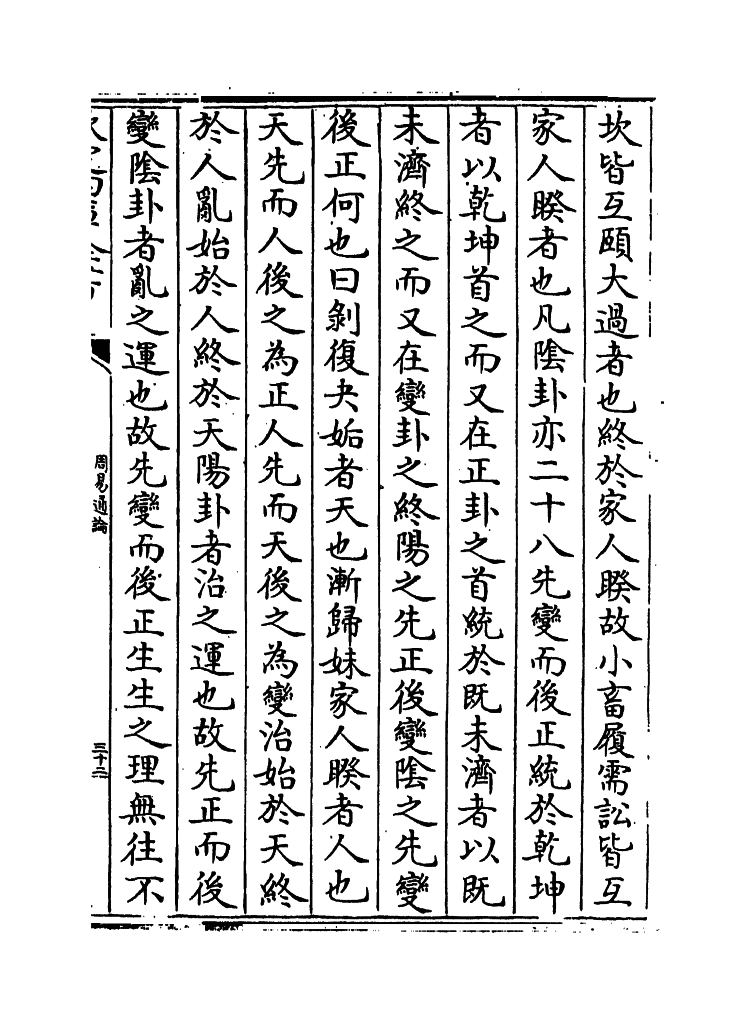 坎皆互頤大過者也終於家人睽故小畜履需訟皆互
家人睽者也凡陰卦亦二十八先變而後正統於乾坤
者以乾坤首之而又在正卦之首統於既未濟者以既
未濟終之而又在變卦之終陽之先正後變陰之先變
後正何也曰剝復夬姤者天也漸歸妹家人睽者人也
天先而人後之為正人先而天後之為變治始於天終
於人亂始於人終於天陽卦者治之運也故先正而後
變陰卦者亂之運也故先變而後正生生之理無往不
周易通論
三十二